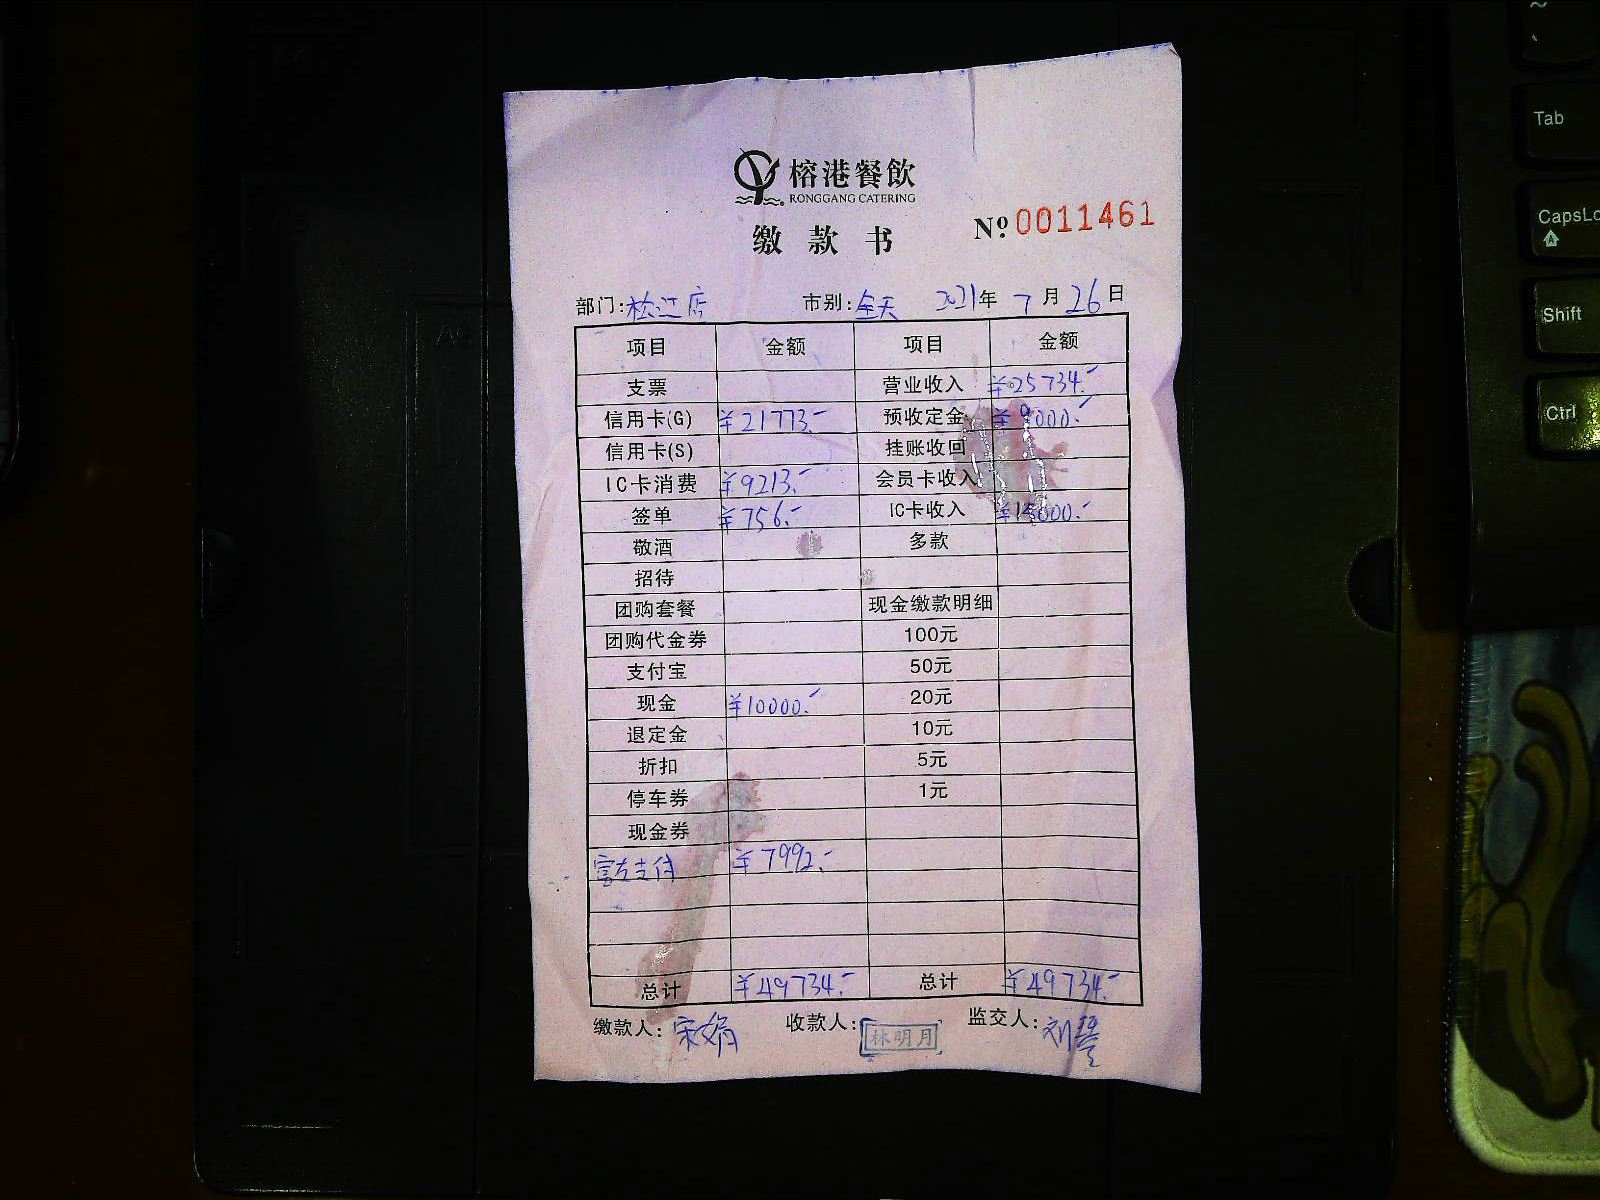 榕港餐飲
RONGGANG CATERING
缴款书
Nº 0011461
部门: 松江店 市别: 全天 2021年 7月 26日
项目 金额 项目 金额
支票 营业收入 ¥25734.-
信用卡(G) ¥21773.- 预收定金 ¥9000.-
信用卡(S) 挂账收回
IC卡消费 ¥9213.- 会员卡收入
签单 ¥756.- IC卡收入 ¥15000.-
敬酒 多款
招待
团购套餐 现金缴款明细
团购代金券 100元
支付宝 50元
现金 ¥10000.- 20元
退定金 10元
折扣 5元
停车券 1元
现金券
富友支付 ¥7992.-
总计 ¥49734.- 总计 ¥49734.-
缴款人: 收款人: 林明月 监交人: 刘
Tab
CapsLo
Shift
Ctrl